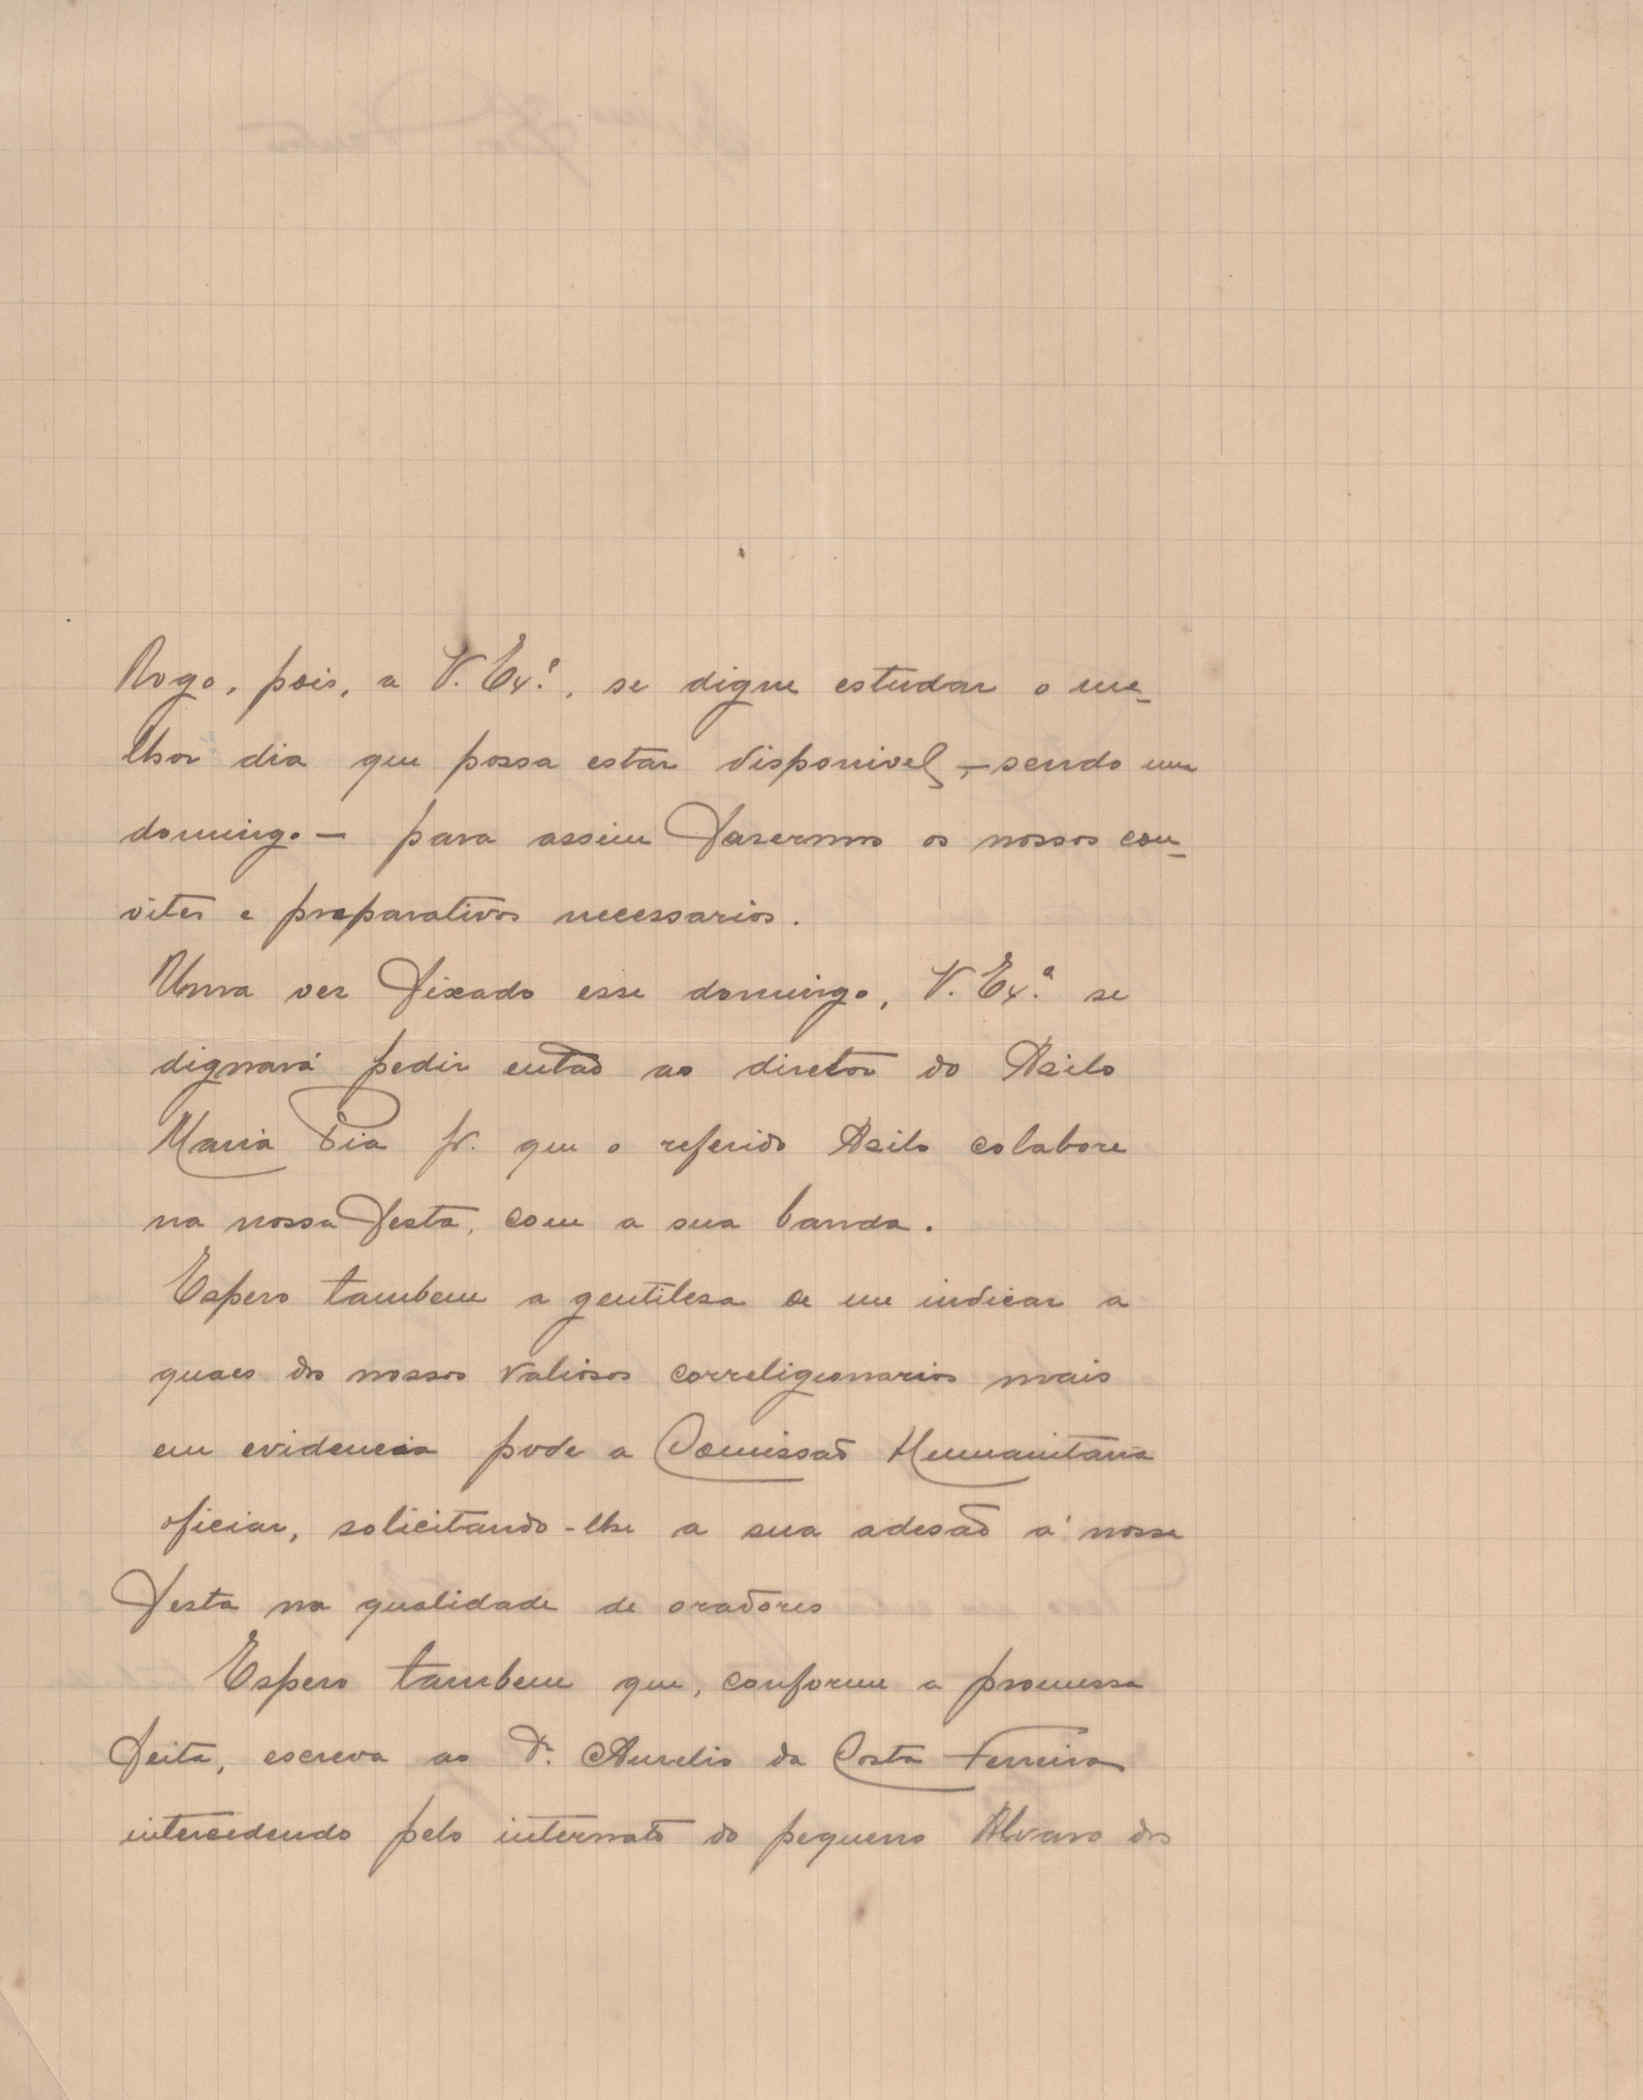 Rogo, pois, a V. Ex.ª, se digne estudar o me-
lhor dia que possa estar disponivel, - sendo um
domingo - para assim fasermos os nossos con-
vites e preparativos necessarios.
Uma vez fixado esse domingo, V. Ex.ª se
dignará pedir então ao diretor do Asilo
Maria Pia pr. que o referido Asilo colabore
na nossa festa, com a sua banda.
Espero tambem a gentilesa de me indicar a
quaes dos nossos valiosos correligionarios mais
em evidencia pode a Comissão Humanitaria
oficiar, solicitando-lhe a sua adesão á nossa
festa na qualidade de oradores
Espero tambem que, conforme a promessa
feita, escreva ao Dr. Aurelio da Costa Ferreira
intercedendo pelo internato do pequeno Alvaro dos